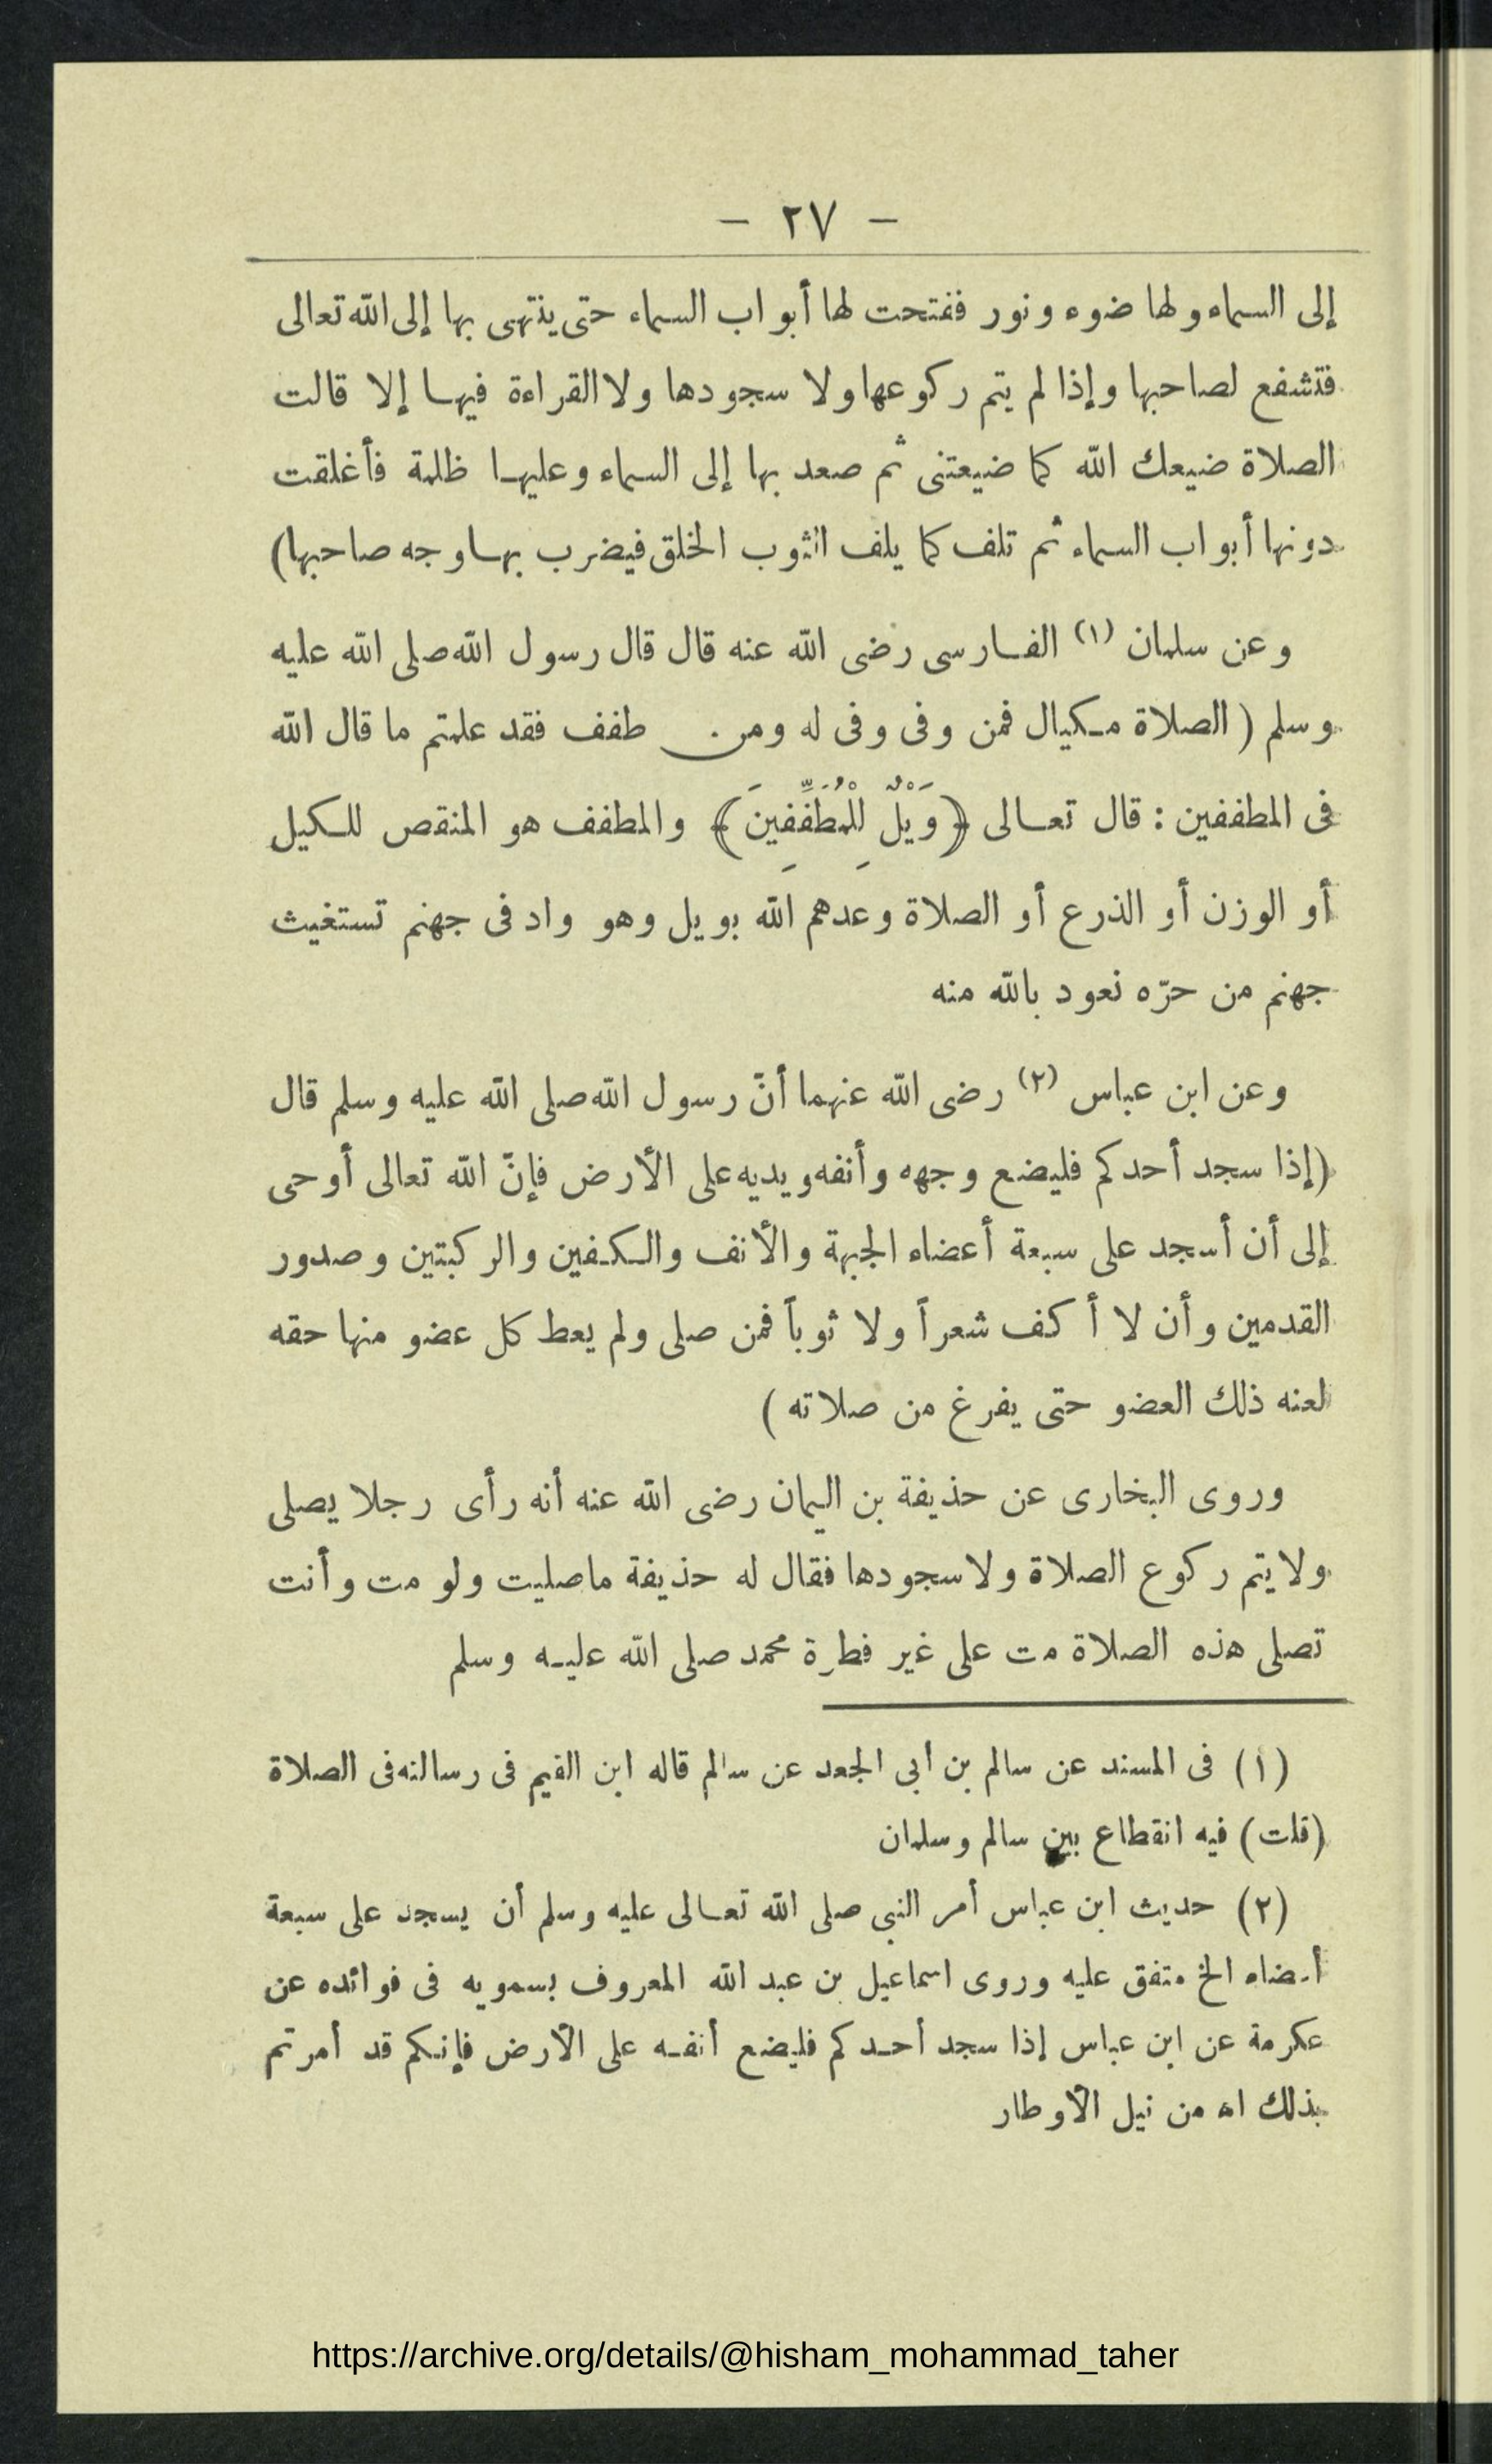 — ٢٧ —
إلى السماء ولها ضوء ونور ففتحت لها أبواب السماء حتى ينتهى بها إلى الله تعالى
فتشفع لصاحبها وإذا لم يتم ركوعها ولا سجودها ولا القراءة فيها إلا قالت
الصلاة ضيعك الله كما ضيعتنى ثم صعد بها إلى السماء وعليها ظلمة فأغلقت
دونها أبواب السماء ثم تلف كما يلف الثوب الخلق فيضرب بها وجه صاحبها)
وعن سلمان (١) الفارسى رضى الله عنه قال قال رسول الله صلى الله عليه
وسلم ( الصلاة مكيال فمن وفى وفى له ومن طفف فقد علمتم ما قال الله
فى المطففين : قال تعالى ﴿وَيْلٌ لِلْمُطَفِّفِينَ﴾ والمطفف هو المنقص للكيل
أو الوزن أو الذرع أو الصلاة وعدهم الله بويل وهو واد فى جهنم تستغيث
جهنم من حرّه نعوذ بالله منه
وعن ابن عباس (٢) رضى الله عنهما أنّ رسول الله صلى الله عليه وسلم قال
(إذا سجد أحدكم فليضع وجهه وأنفه ويديه على الأرض فإنّ الله تعالى أوحى
إلى أن أسجد على سبعة أعضاء الجبهة والأنف والكفين والركبتين وصدور
القدمين وأن لا أكف شعراً ولا ثوباً فمن صلى ولم يعط كل عضو منها حقه
لعنه ذلك العضو حتى يفرغ من صلاته )
وروى البخارى عن حذيفة بن اليمان رضى الله عنه أنه رأى رجلا يصلى
ولا يتم ركوع الصلاة ولا سجودها فقال له حذيفة ماصليت ولو مت وأنت
تصلى هذه الصلاة مت على غير فطرة محمد صلى الله عليه وسلم
(١) فى المسند عن سالم بن أبى الجعد عن سالم قاله ابن القيم فى رسالته فى الصلاة
(قلت) فيه انقطاع بين سالم وسلمان
(٢) حديث ابن عباس أمر النبى صلى الله تعالى عليه وسلم أن يسجد على سبعة
أعضاء الخ متفق عليه وروى اسماعيل بن عبد الله المعروف بسمويه فى فوائده عن
عكرمة عن ابن عباس إذا سجد أحدكم فليضع أنفه على الأرض فإنكم قد أمرتم
بذلك اه من نيل الأوطار
https://archive.org/details/@hisham_mohammad_taher